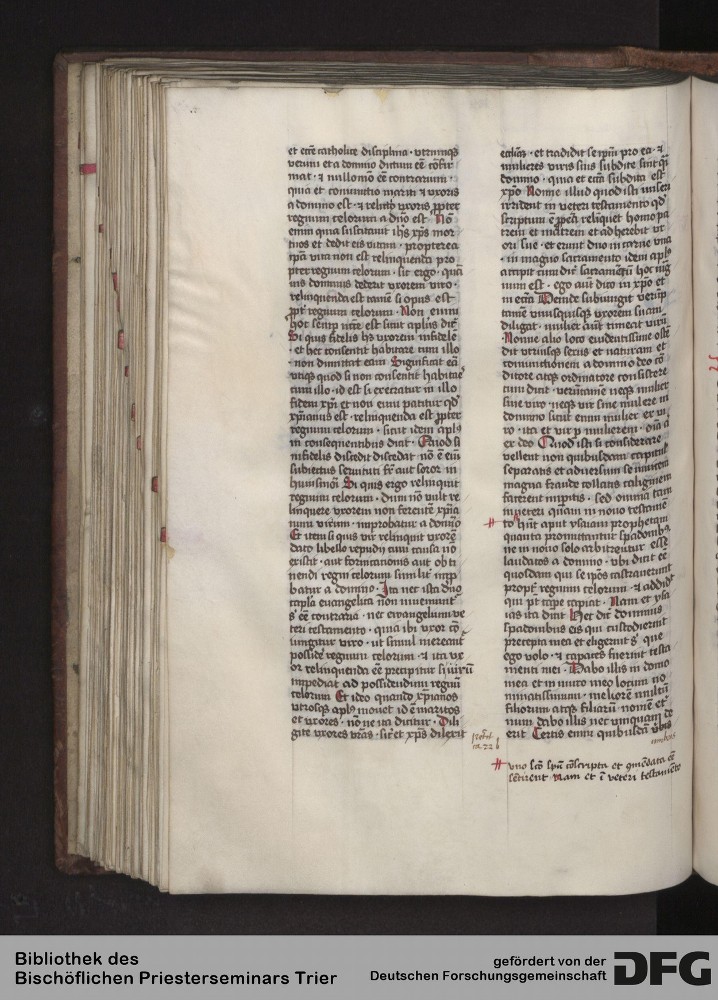 et ecce catholice disciplina · vtrumqꝫ
verum et a domino dictum eē cōfir
mat · ⁊ nullomō eē contrarium ·
quia et coniunctio mariti ⁊ vxoris
a domino est · ⁊ relictio vxoris ꝓpter
regnum celorum a dn̄o est Nō
enim quia suscitauit ih̄s xp̄s mor
tuos et dedit eis vitam · propterea
ip̄a vita non est relinquenda pro
pter regnum celorum · sic ergo · quā
uis dominus dederit vxorem viro ·
relinquenda est tamē si opus est
ꝓpt̄ regnum celorum · Non enim
hoc semꝑ n̄cē est sicut aplūs dic̄
Si quis fidelis h̄s vxorem infidelē
· et hec consentit habitare cum illo
· non dimittat eam Significat eā
vtiqꝫ quod si non consentit habitare
cum illo · id est si execratur in illo
fidem xp̄i et non eum patitur qd̓
xp̄ianus est · relinquenda est ꝓpter
regnum celorum · sicut idem apls̄
in consequentibus dicit · Quod si
infidelis discedit discedat nō ē eīm
subiectus seruituti fr̄ aut soror in
huiusmōi Si quis ergo relinquit
regnum celorum · dum nō vult re
linquere vxorem non ferentē xp̄ia
num virum · improbatur a domīo
Et item si quis vir relinquit vxorē
dato libello repudij cum causa nō
existit · aut fornicationis aut obti
nendi regni celorum similit̄ imꝑ
batur a domino · Ita nec ista duo
capl̄a euangelica non inueniunt̄
s̓ eē contraria · nec ewangelium ve
teri testamento · quia ibi vxor cō
iungitur viro · ut simul mereant̄
possidē regnum celorum · ⁊ ita vx
or relinquenda eē precipitur si virū
impediat ad possidendum regnū
celorum Et ideo quando xp̄ianos
vtrosqꝫ apls̄ mouet id ē maritos
et vxores · nōne ita dicitur · Dili
gite vxores vr̄as · sic̄ et xp̄s dilexit
eccliāꝫ · et tradidit se ip̄m pro ea · ⁊
mulieres viris suis subdite sint qͥ
domino · quia et ecc̄ia subdita est
xp̄o Nonne illud quod isti miseri
irrident in veteri testamento qd̓
scriptum ē ꝓpt̄ea relinquet homo pa
trem et matrem et adherebit vx
ori sue · et erunt duo in carne vna
· in magno sacramento idem apls̄
accipit cum dic̄ sacramētū hoc mag
num est · ego aūt dico in xp̄o et
in eccīa Deinde subiungit verūp
tamē vnusquisqꝫ vxorem suam
diligat · mulier aūt timeat virū
· Nonne alio loco euidentissime ostē
dit vtriusqꝫ sexus et naturam et
coniunctionem a domino deo cō
ditore atqꝫ ordinatore consistere
cum dicit · verumtamē neqꝫ mulier
sine viro · neqꝫ vir sine muliere in
domino sicut enim mulier ex vi
ro · ita et vir ꝑ mulierem · oīa aūt
ex deo Quod isti si considerare
vellent non quibusdam capitulis
separatis et aduersum se
magna fraude collatis caliginem
facerent imꝑitis · sed omnia tam
in veteri quam in nouo testamēto
hn̄t aput ysaiam prophetam
quanta promittantur spadonibus
ne in nouo solo arbitrentur esse
laudatos a domino · vbi dicit eē
quosdam qui se ip̄os castrauerunt
propt̄ regnum celorum · ⁊ addidit
qui pt̄ capere capiat · Nam et ysa
ias ita dicit Hec dic̄ dominus
spadonibus eis qui custodierint
precepta mea et elegerint s̓ que
ego volo · ⁊ capaces fuerint testa
menti mei · Dabo illis in domo
mea et in muro meo locum no
minatissimum · meliorē multū
filiorum atqꝫ filiarū · nomē et̄
num dabo illis nec vmquam de
erit Certis enim quibusdā
⌗ vno sc̄o spū cōscripta et cōmēdata eē
sētirent Nam et ī veteri testamēto
Bibliothek des
Bischöflichen Priesterseminars Trier
gefördert von der
Deutschen Forschungsgemeinschaft
DFG